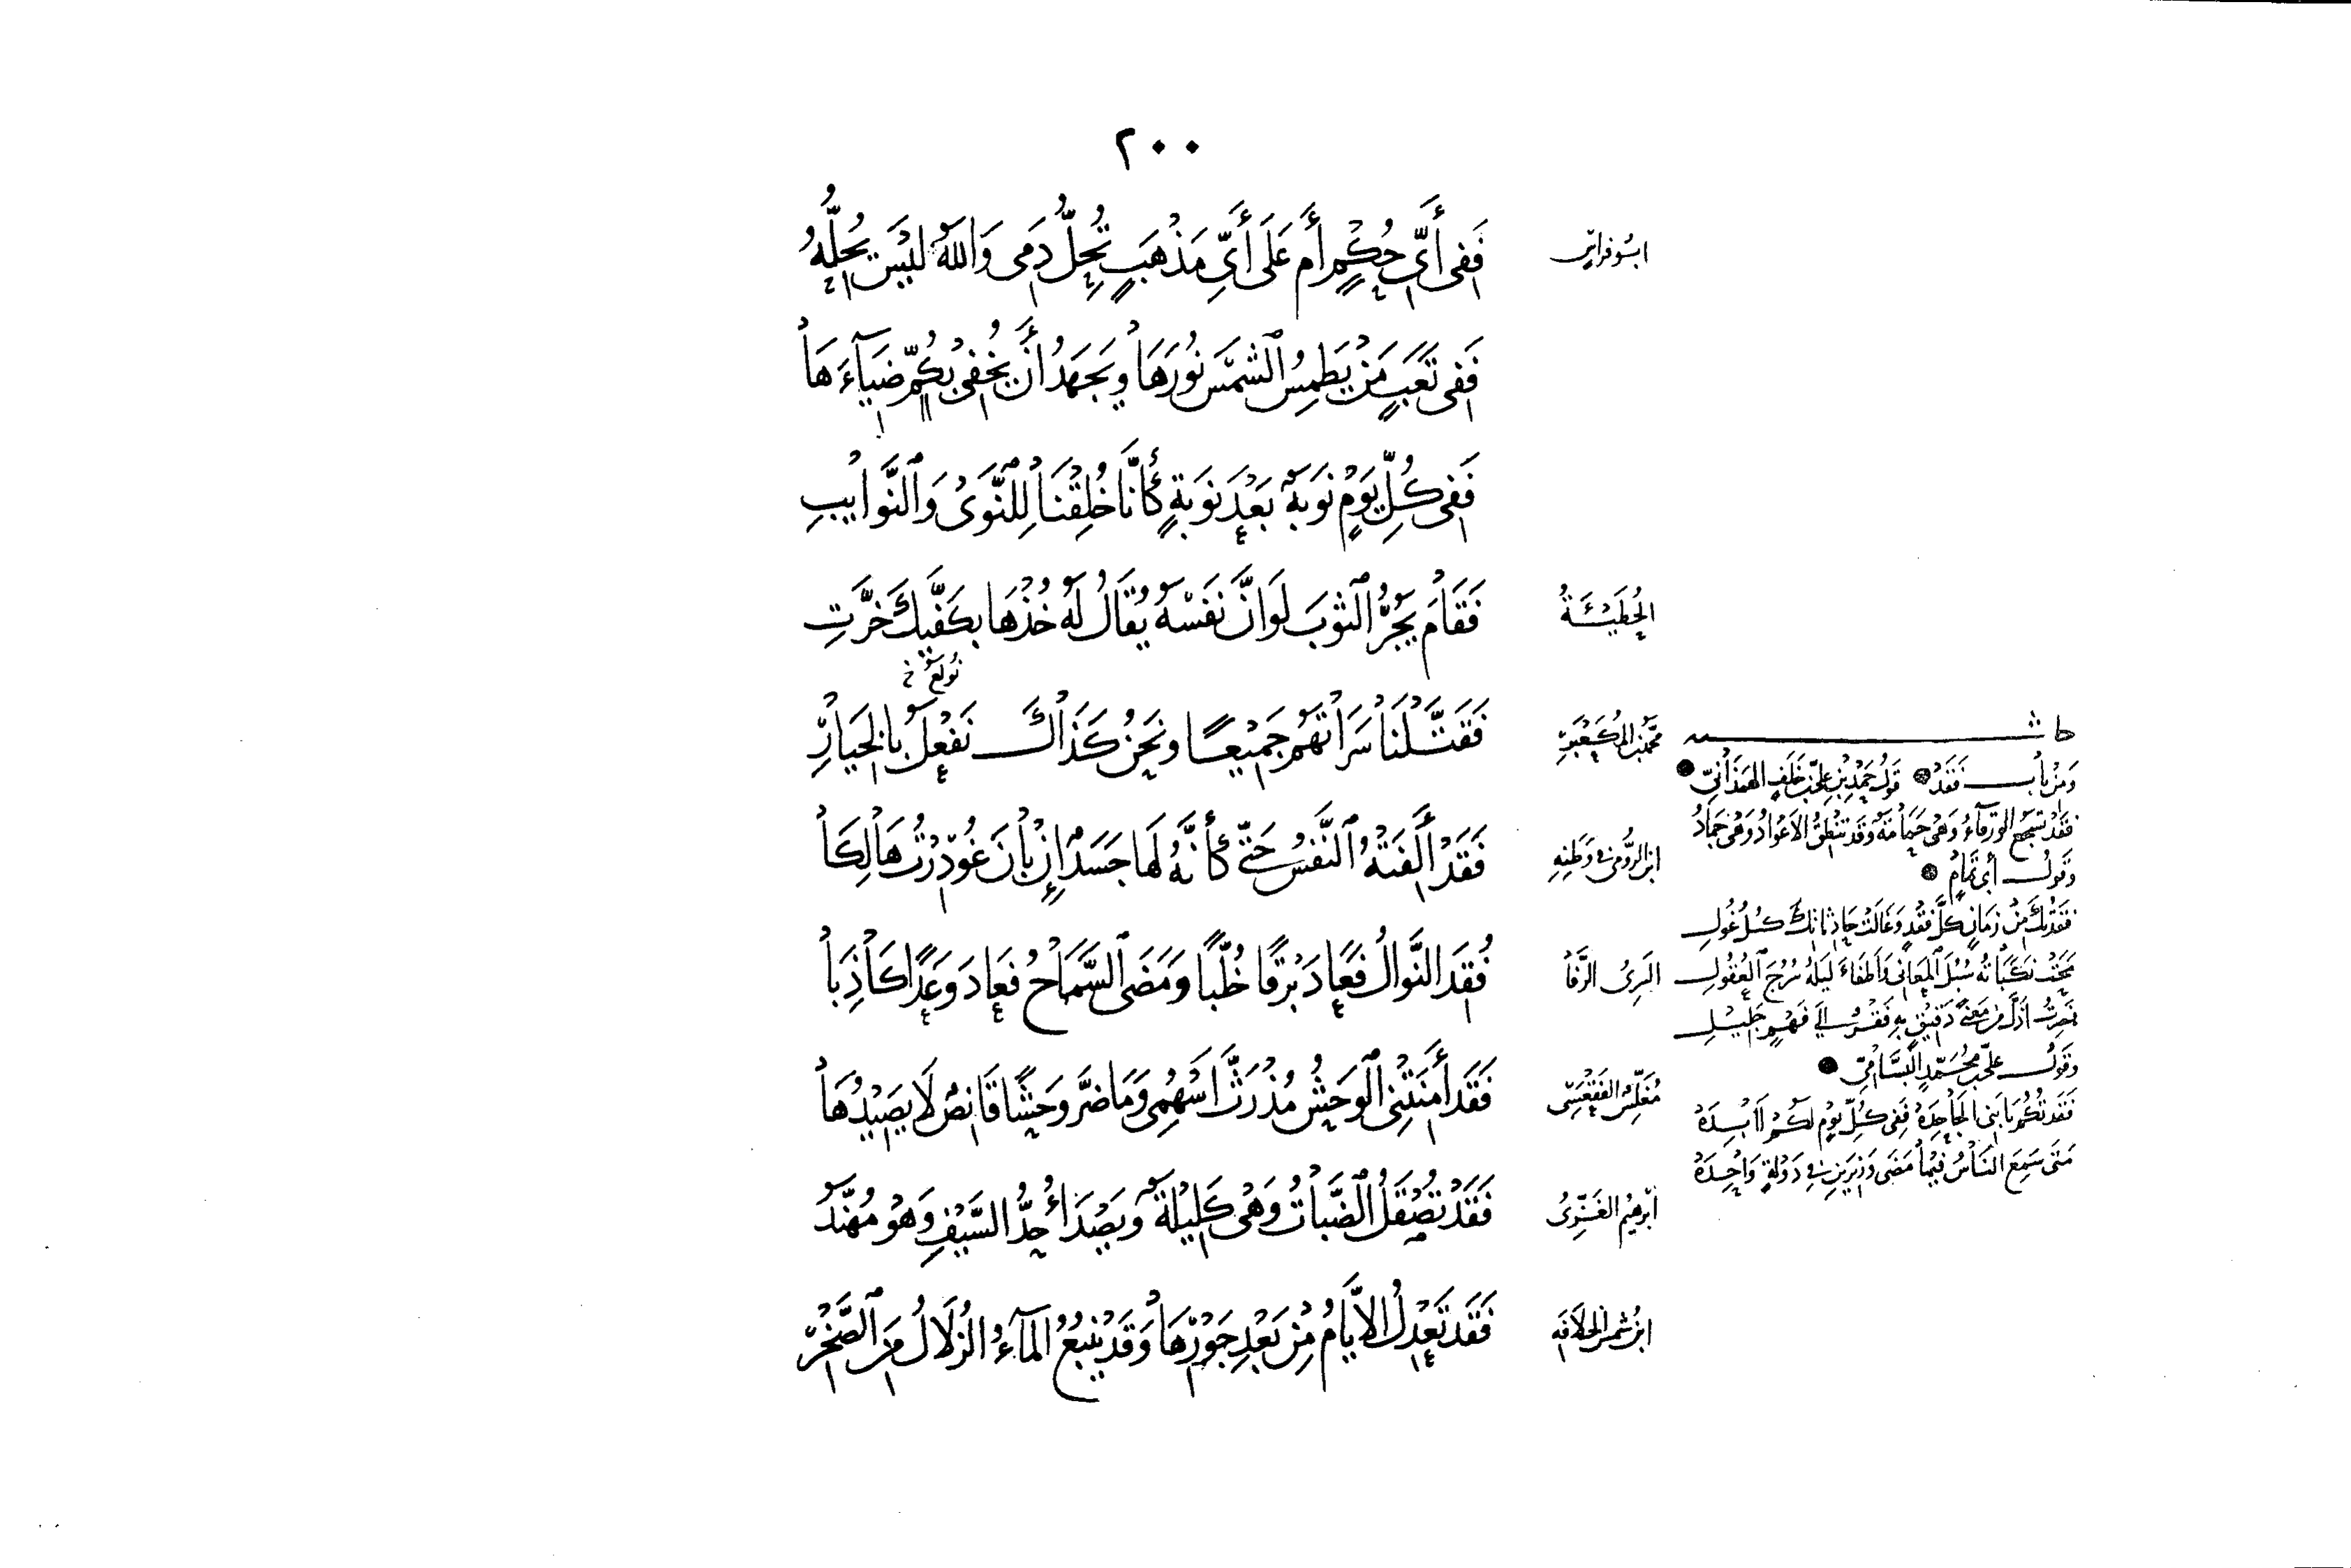 ٢٠٠
فَفِى أَىِّ حُكْمٍ أَم عَلَى أَىِّ مَذْهَبٍ تُحِلُّ دَمِى وَاللهُ لَيْسَ يُحِلُّهُ
ابو فراس
فَفِى تَعَبٍ مَنْ يَطمِسُ الشَّمسَ نُورَهَا وَيَجهَدُ أَنْ يُخْفِى بِكُمٍّ ضِيَآءَهَا
فَفِى كُلِّ يَوْمٍ نَوبَةٌ بَعْدَ نَوبَةٍ كَأَنَّا خُلِقْنَا لِلنَّوَى وَالنَّوَايِبِ
فَقَامَ يَجُرُّ الثَّوبَ لَو أنَّ نَفْسَهُ يُقَالُ لَهُ خُذْهَا بِكَفَّيكَ خَرَّتِ
الحُطَيْئَةُ
نُولَعُ
فَقَتَّلْنَا سَرَاتَهُمُ جَمِيْعًا وَنَحنُ كَذَاكَ نَفْعَلُ بِالخِيَارِ
مُحمّد بن المكَعْبَرِ
فَقَدْ أَلِفَتْهُ النَّفْسُ حَتَّى كَأَنَّهُ لَهَا جَسَدٌ إِنْ بَانَ غُوْدِرْتُ هَالِكَا
ابن الرُّومى فى وَطَنِهِ
فُقِدَ النَّوالُ فَعَادَ بَرْقًا خُلَّبًا وَمَضَى السَّمَاحُ فَعَادَ وَعْدًا كَاذِبَا
السَّرِىُّ الرَّفّا
فَقَدْ أَمِنَتْنِى الوَحشُ مُذْ رَثَّ اَسْهُمِى وَمَا ضَرَّ وَحشًا قَانِصٌ لَا يَصِيْدُهَا
مُغَلِّسٌ الفَقْعَسِىّ
فَقَدْ تُصْقَلُ الضَّبَاتُ وَهْىَ كَلِيْلَةٌ وَيَصْدَأُ حَدُّ السَّيْفِ وَهُوَ مُهَنَّدُ
ابرهيمُ الغَزِّىُّ
فَقَدْ تَعْدِلُ الأَيَّامُ مِنْ بَعْدِ جَوْرِهَا وَقَدْ يَنْبُعُ المآءُ الزُّلَالُ مِنَ الصَّخْرِ
ابن شمس الخلافه
هَامش
وَمِنْ بَاب فَقَدْ قَولُ حَمْدِ بْنِ عَلىّ بْنِ خَلَفٍ الهمَذَانِىّ
فَقَدْ تَسجَعُ الوَرقَآءُ وَهْىَ حَمَامَةٌ وَقَد تَنْطِقُ الأَعْوَادُ وَهْىَ جَمَادُ
وَقَولُ أَبى تمَّامٍ
فَقَدْتُكَ مِنْ زَمَانٍ كُلَّ فَقْدٍ وَغَالَتْ حَادِثَاتِكَ كُلُّ غُولِ
مَحَتْ نَكَبَاتُهُ سُبُلَ المعَانِى وَاَطفَاءَ لَيلُهُ سُرُجَ العُقُولِ
أَدَقَّ مِن مَعْنًى دَقيقٍ بِهِ فَقْرٌ الى فَهْمٍ جَلِيْلِ
وَقَولُ علىّ بن مُحمّدٍ البَسَّامِىّ
فَقَدتُكُم يَا بَنى الجَاحِدَهْ فَفِى كُلِّ يَومٍ لَكُم آبِدَهْ
مَتَى سَمِعَ النَّاسُ فِيْمَا مَضَى وَزِيرَيْنِ فى دَولَةٍ وَاحِدَهْ